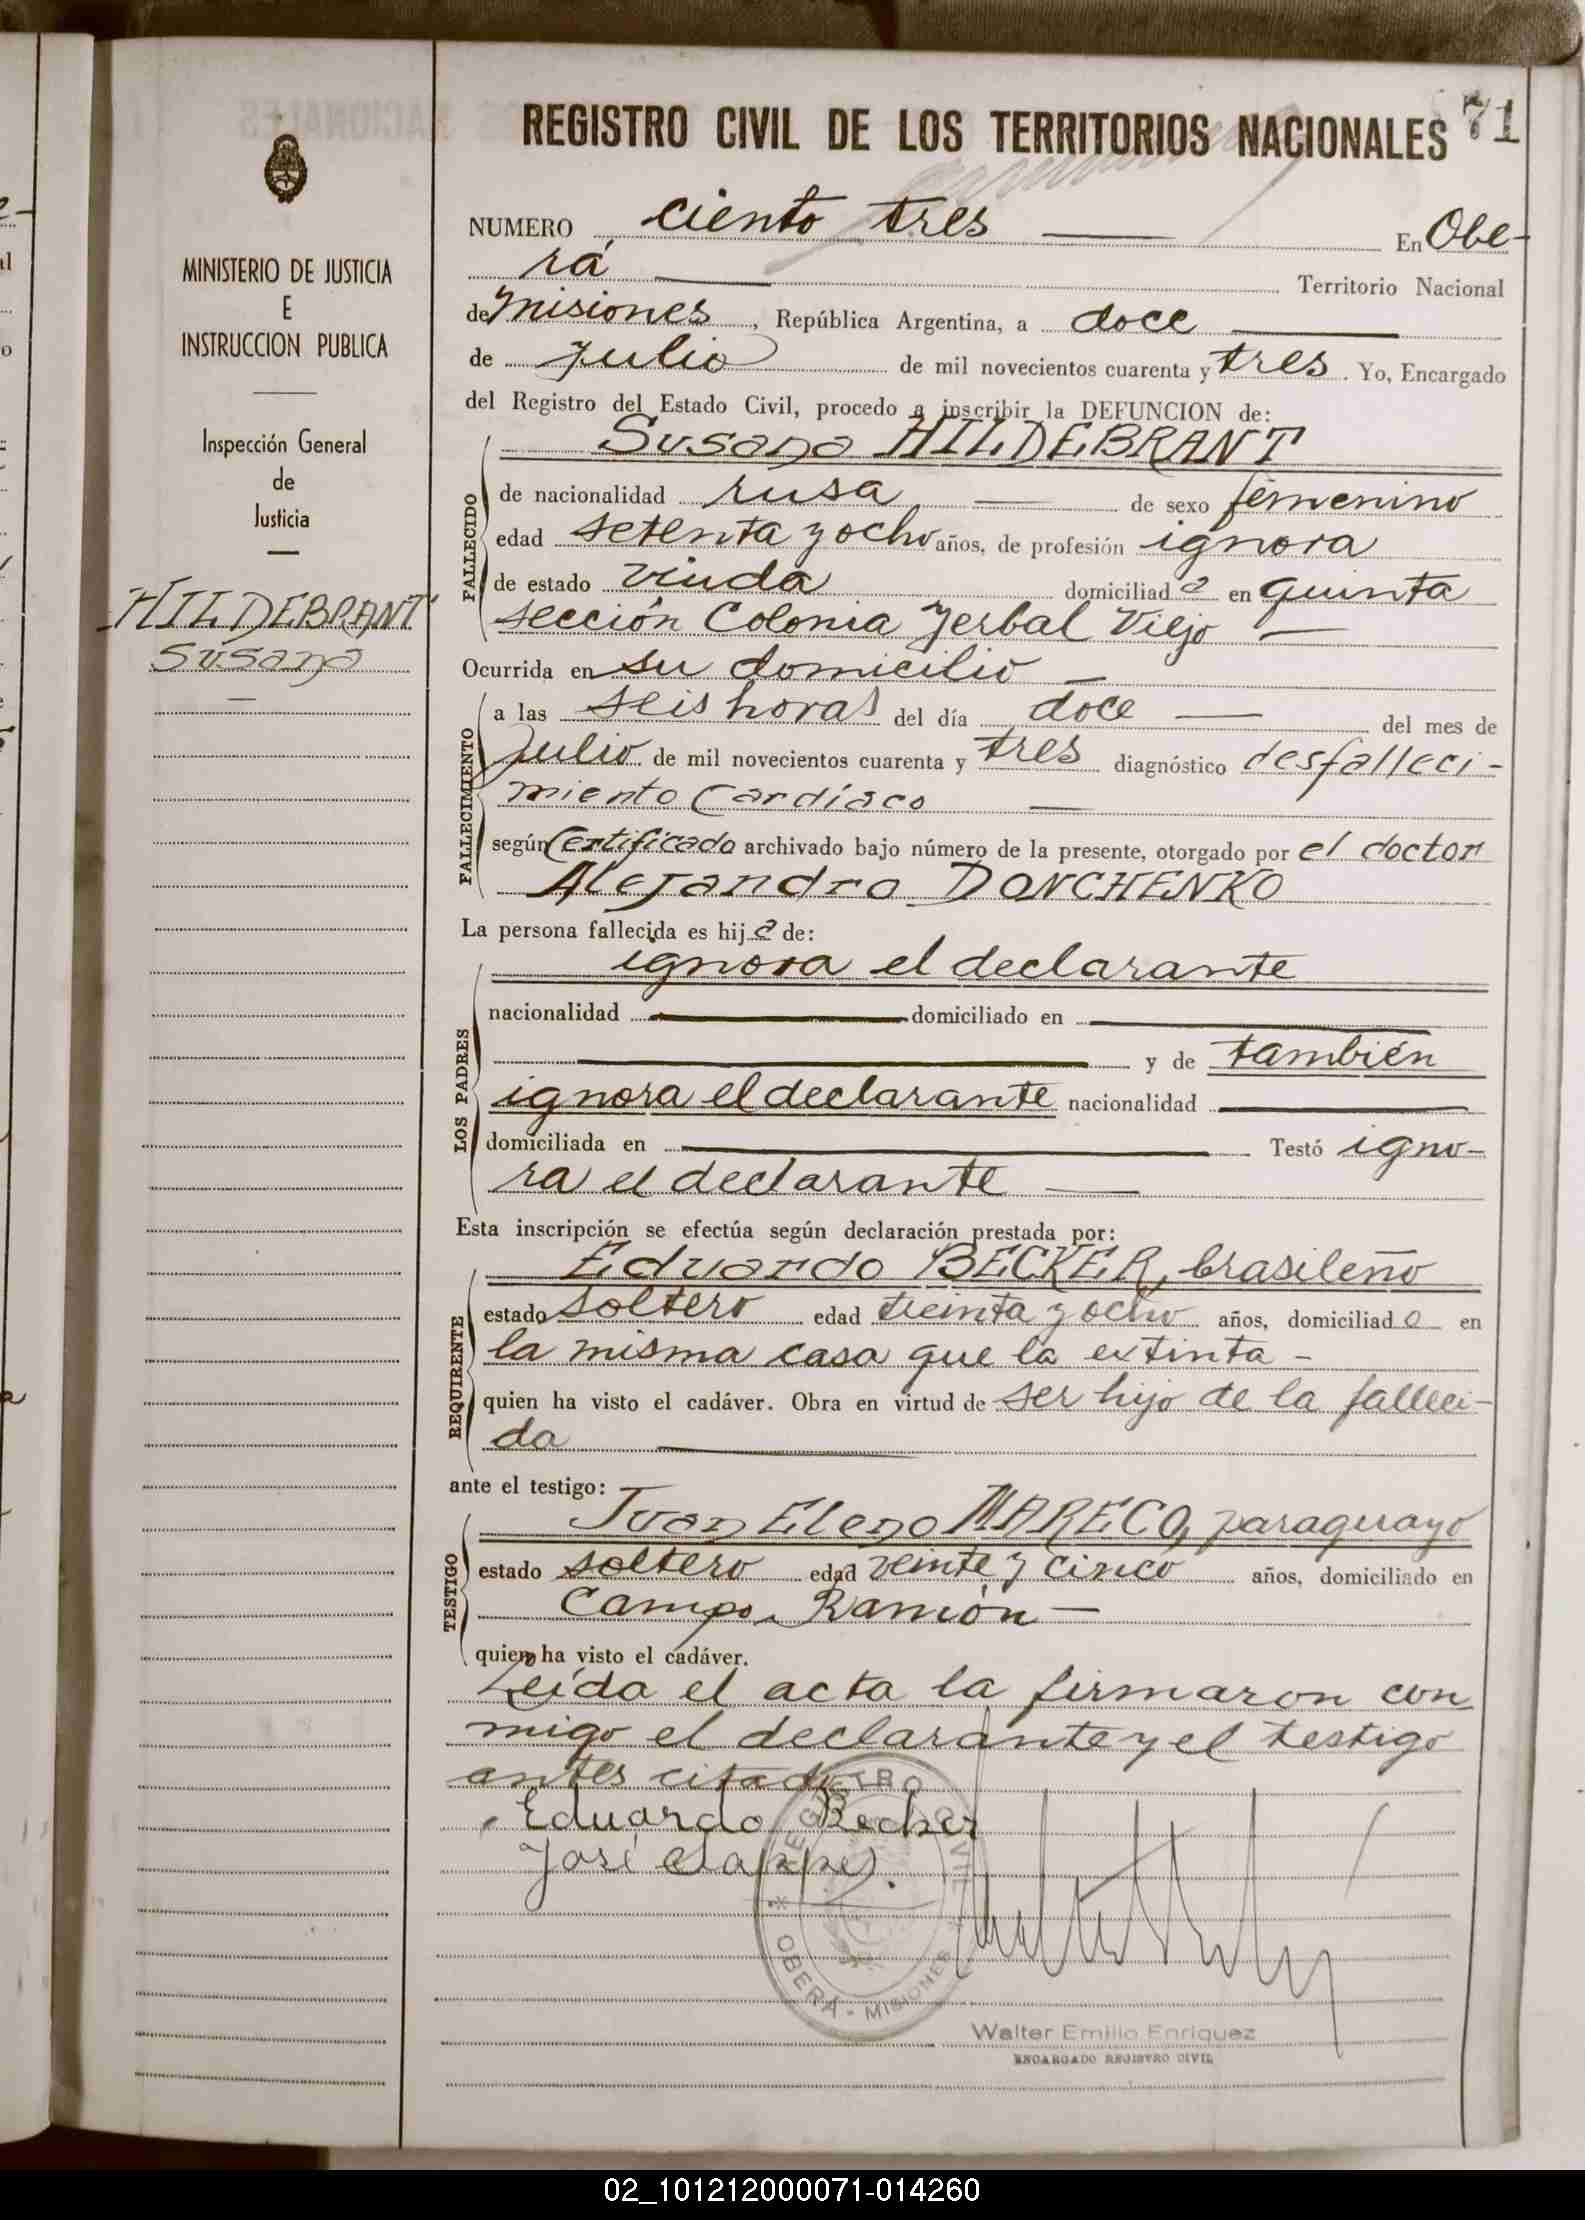 REGISTRO CIVIL DE LOS TERRITORIOS NACIONALES 71
MINISTERIO DE JUSTICIA
E
INSTRUCCION PUBLICA
Inspección General
de
Justicia
HILDEBRANT
Susana
NUMERO ciento tres En Obe-
rá Territorio Nacional
de Misiones, República Argentina, a doce
de Julio de mil novecientos cuarenta y tres. Yo, Encargado
del Registro del Estado Civil, procedo a inscribir la DEFUNCION de:
Susana HILDEBRANT
FALLECIDO
de nacionalidad rusa de sexo femenino
edad setenta y ocho años, de profesión ignora
de estado viuda domiciliada en quinta
sección Colonia Yerbal Viejo
Ocurrida en su domicilio
FALLECIMIENTO
a las seis horas del día doce del mes de
Julio de mil novecientos cuarenta y tres diagnóstico desfalleci-
miento Cardíaco
según Certificado archivado bajo número de la presente, otorgado por el doctor
Alejandro DONCHENKO
La persona fallecida es hija de:
ignora el declarante
LOS PADRES
nacionalidad domiciliado en
y de también
ignora el declarante nacionalidad
domiciliada en Testó igno-
ra el declarante
Esta inscripción se efectúa según declaración prestada por:
Eduardo BECKER, brasileño
REQUIRENTE
estado soltero edad treinta y ocho años, domiciliado en
la misma casa que la extinta -
quien ha visto el cadáver. Obra en virtud de ser hijo de la falleci-
da
ante el testigo:
Juan Eleno MARECO, paraguayo
TESTIGO
estado soltero edad veinte y cinco años, domiciliado en
Campo Ramón -
quien ha visto el cadáver.
Leída el acta la firmaron con
migo el declarante y el testigo
antes citado
Eduardo Becker
José
REGISTRO CIVIL
OBERÁ - MISIONES
Walter Emilio Enriquez
ENCARGADO REGISTRO CIVIL
02_101212000071-014260